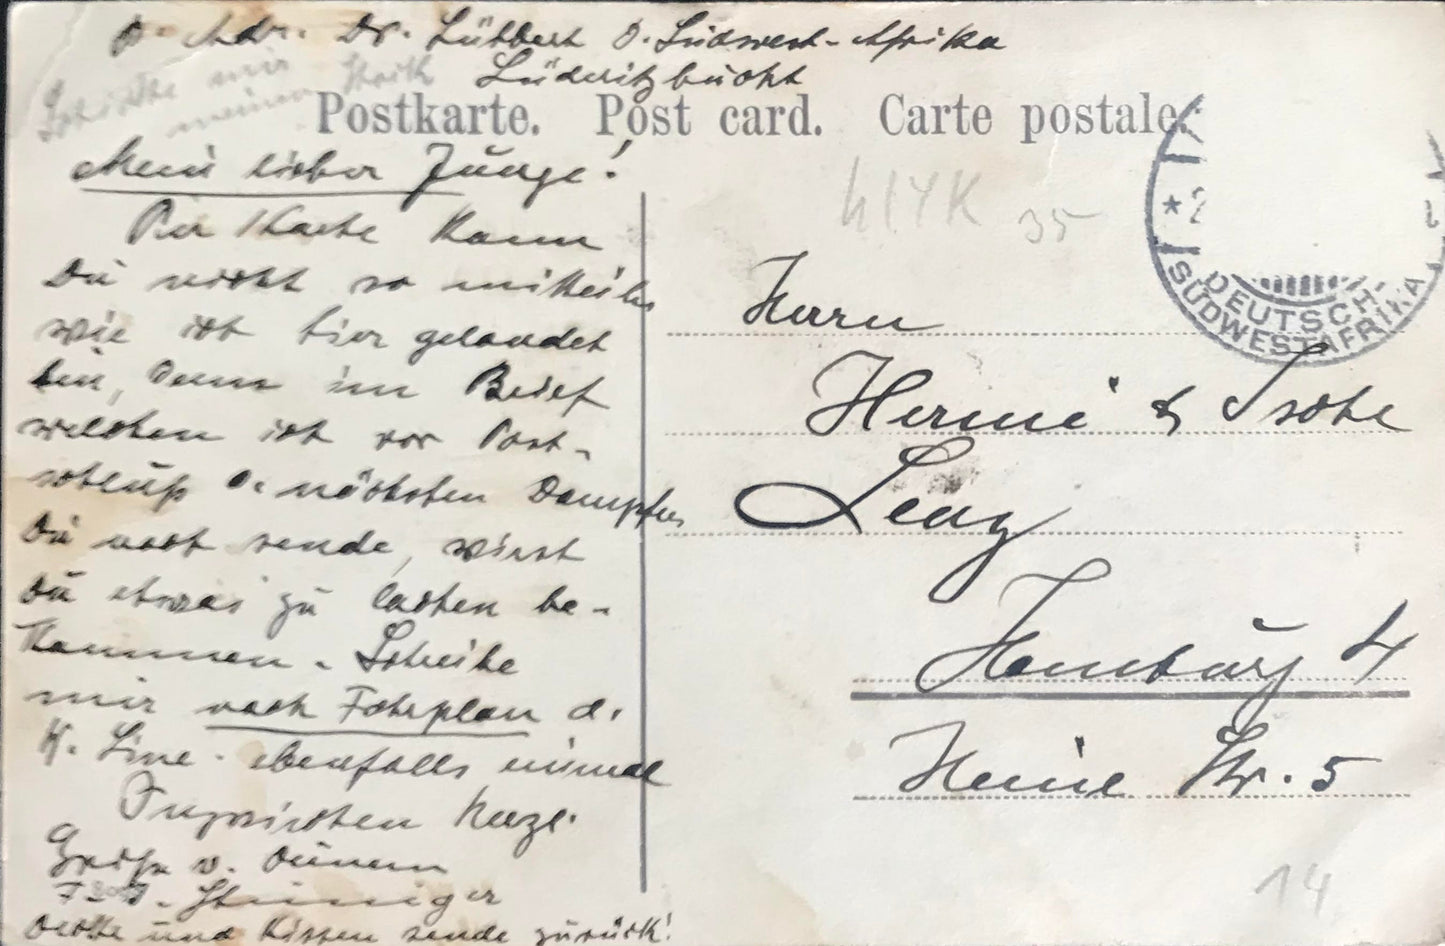 Adr. Dr. Lübbert D. Südwest-Afrika
Lüderitzbucht
Schicke mir
meinen
Postkarte. Post card. Carte postale.
Mein lieber Junge!
Per Karte kann
Du nicht so mitteilen
wie ich hier gelandet
bin, denn im Brief
welchen ich vor Post-
schluß d. nächsten Dampfers
Du noch sende, wirst
Du etwas zu lachen be-
kommen. Schreibe
mir nach Fahrplan d.
W. Line. ebenfalls einmal
Inzwischen herzl.
Grüße v. Deinem
Decke und Kissen sende zurück!
Herrn
Hermi & Ische
Lenz
Hamburg 4
Heine Str. 5
35
14
* 2
DEUTSCH-
SÜDWESTAFRIKA